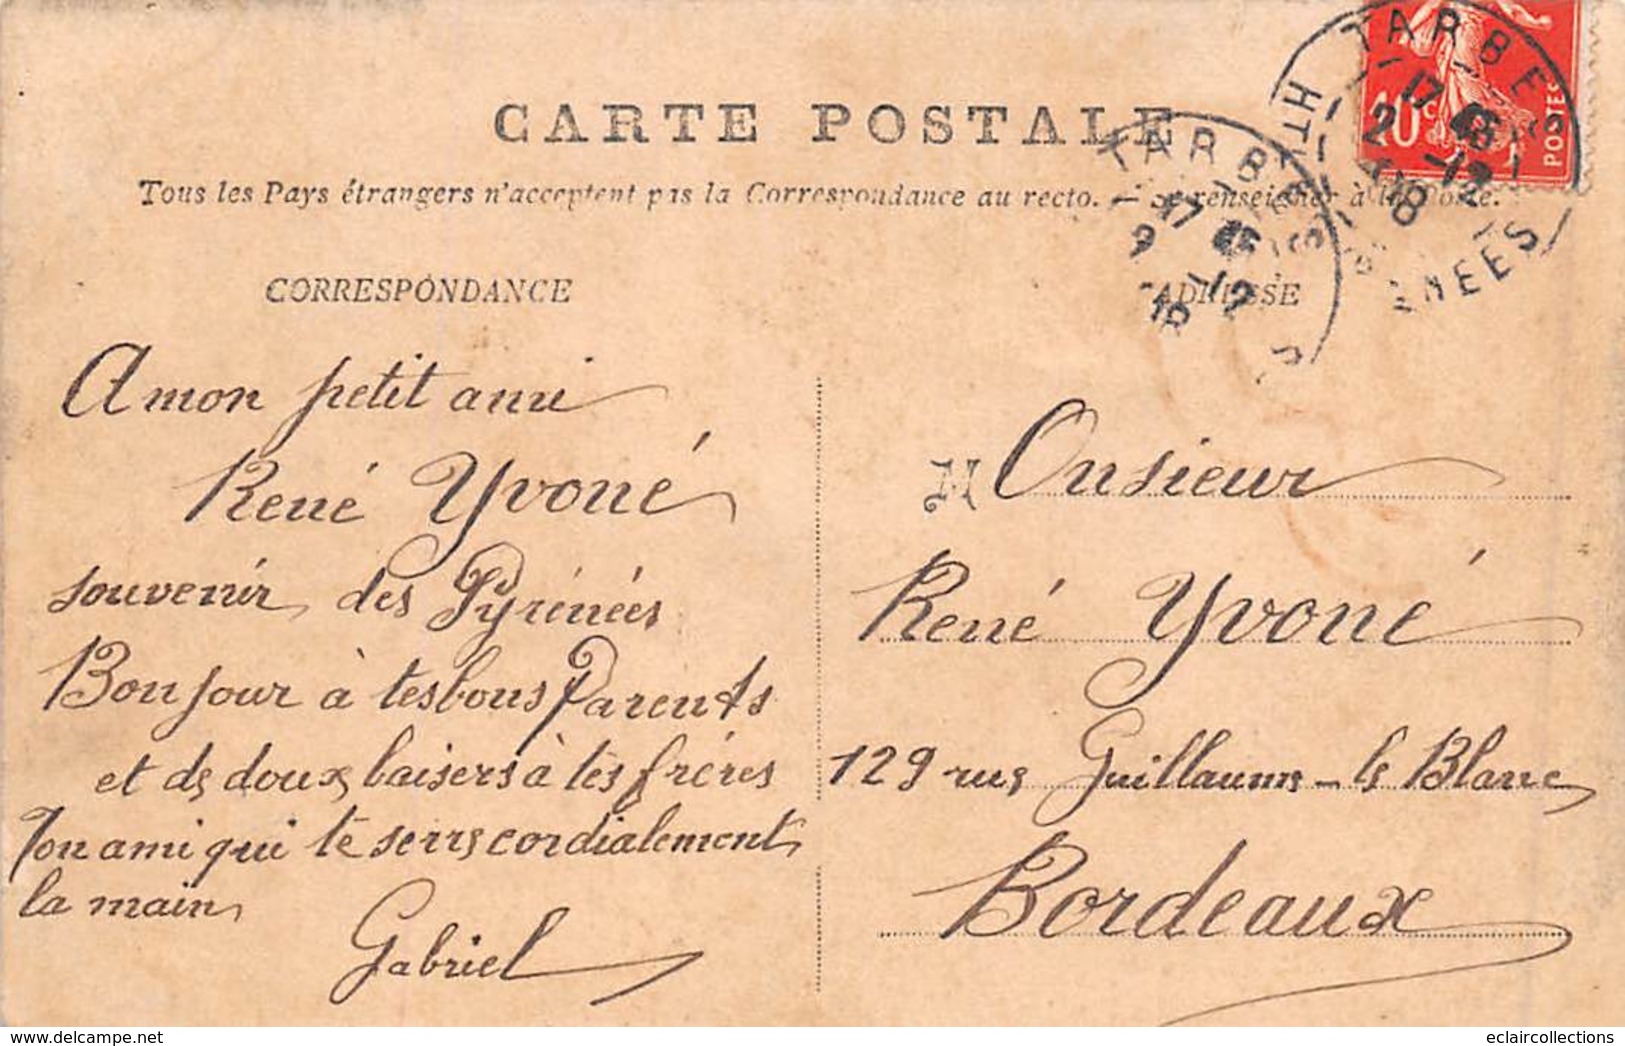 CARTE POSTALE
Tous les Pays étrangers n'acceptent pas la Correspondance au recto. — Se renseigner à la Poste.
CORRESPONDANCE
ADRESSE
TARBES
17 45
2 -12
08
HTES PYRENEES
TARBES
17 45
2 -12
10c
POSTES
A mon petit ami
René Yvoné
souvenir des Pyrénées
Bonjour à tes bons Parents
et de doux baisers à tes frères
Ton ami qui te serre cordialement
la main
Gabriel
M Onsieur
René Yvoné
129 rue Guillaume-le Blanc
Bordeaux
http://eclaircollections.delcampe.net
eclaircollections